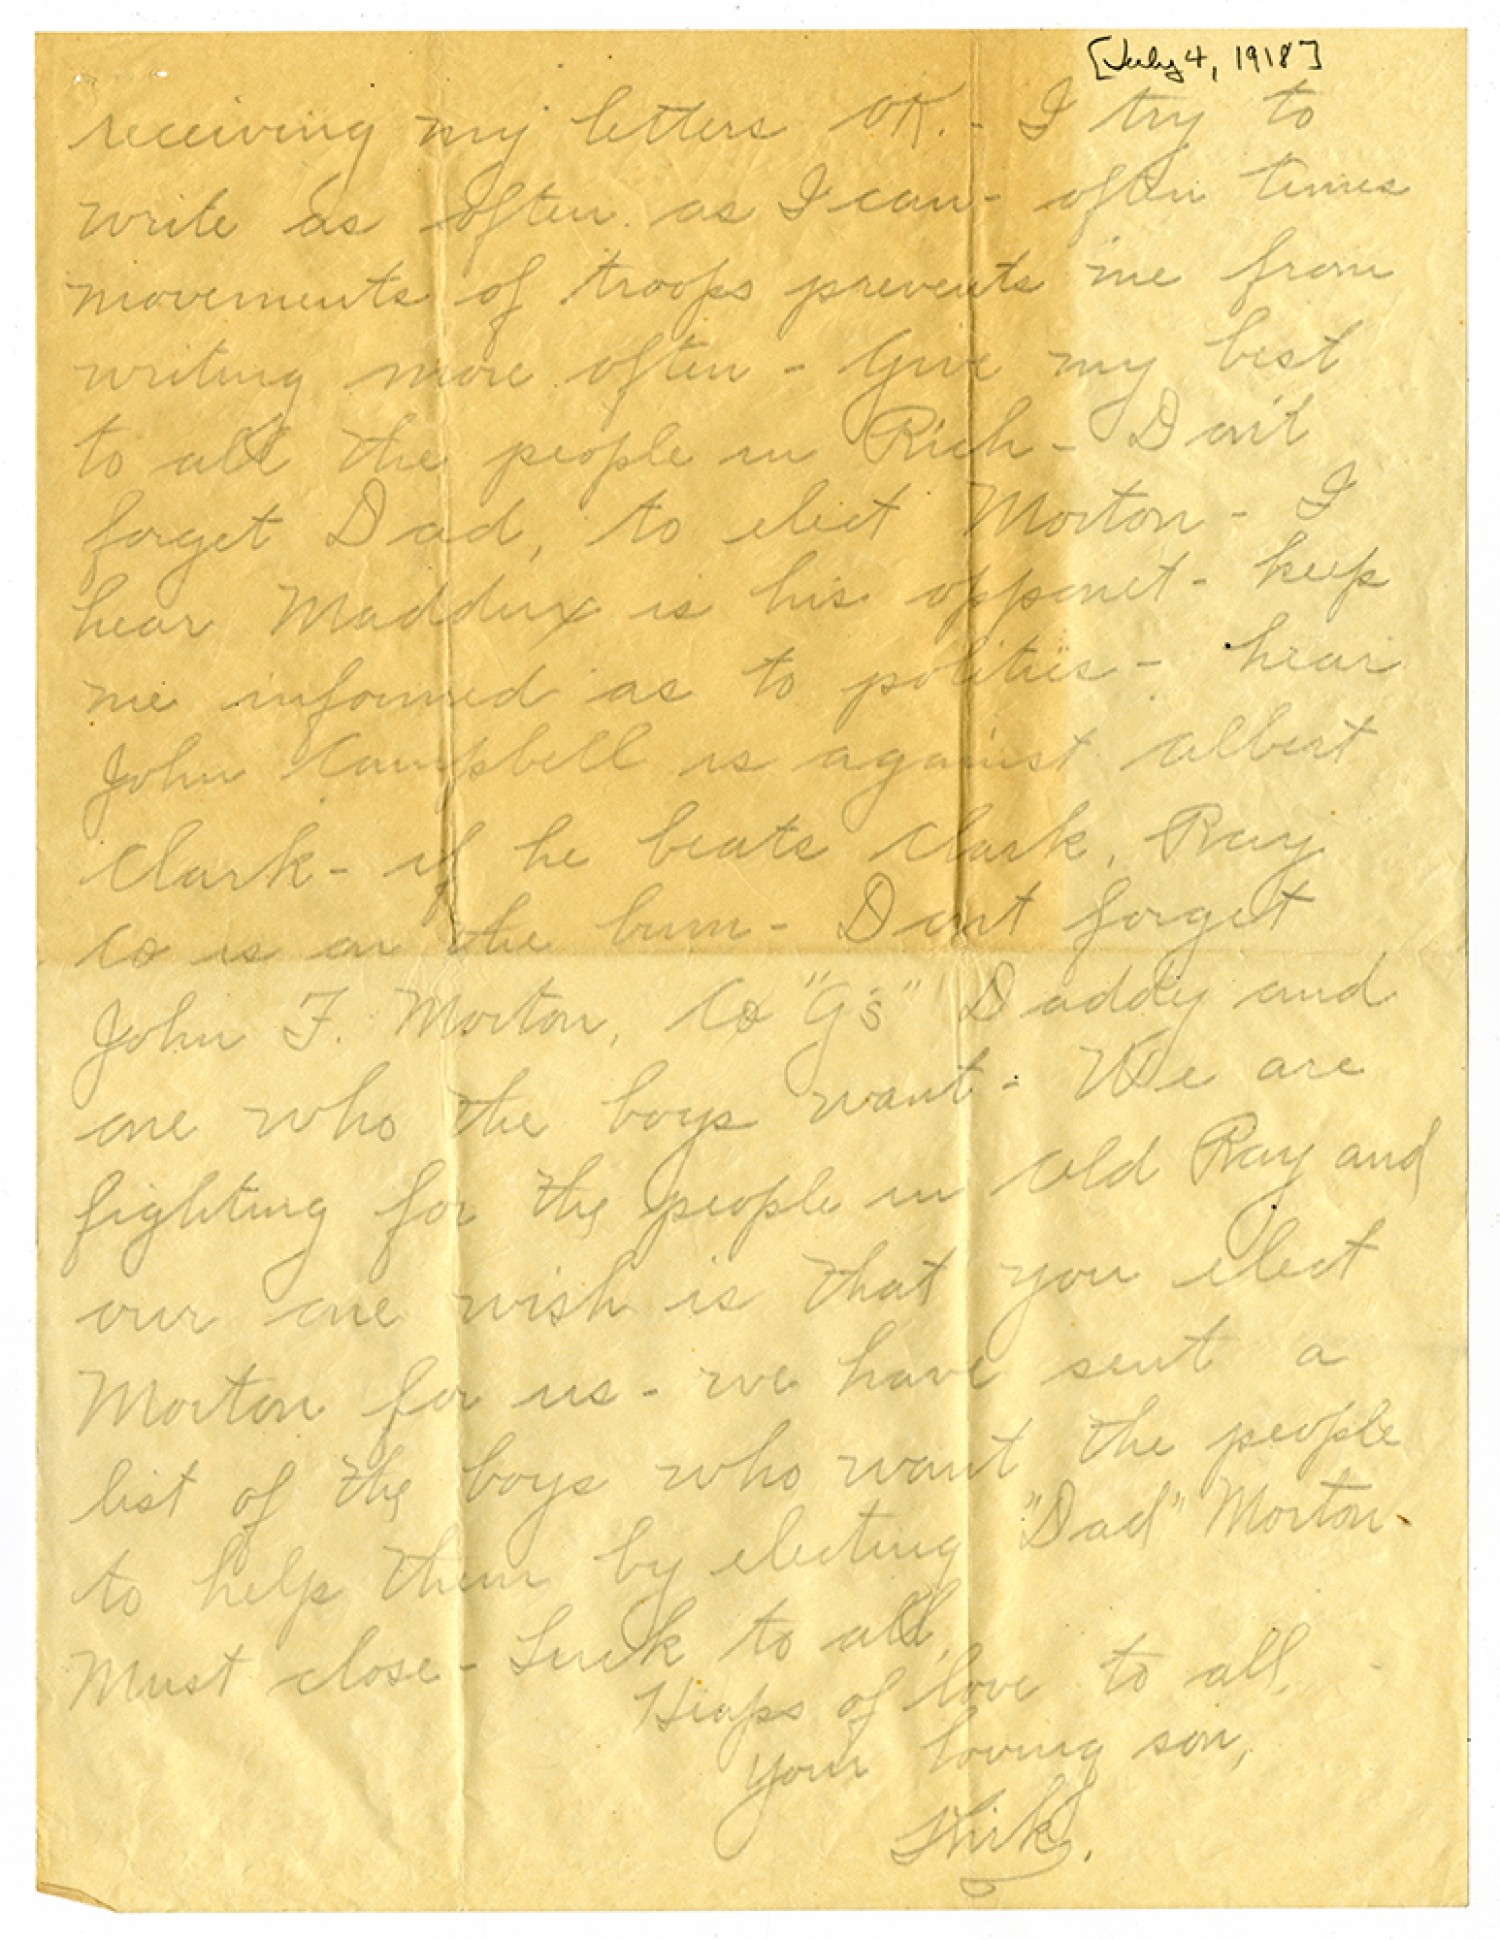 [July 4, 1918]
receiving my letters OK. - I try to
write as often as I can - often times
movements of troops prevents me from
writing more often - Give my best
to all the people in Rich - Don't
forget Dad, to elect Morton - I
hear Maddux is his opponet - keep
me informed as to politics - hear
John Campbell is against Albert
Clark - if he beats Clark, Ray
Co is on the bum - Don't forget
John F. Morton, Co "G's" Daddy and
one who the boys want - We are
fighting for the people in Old Ray and
our one wish is that you elect
Morton for us - we have sent a
list of the boys who want the people
to help them by electing "Dad" Morton
Must close - Luck to all,
Heaps of love to all,
Your loving son,